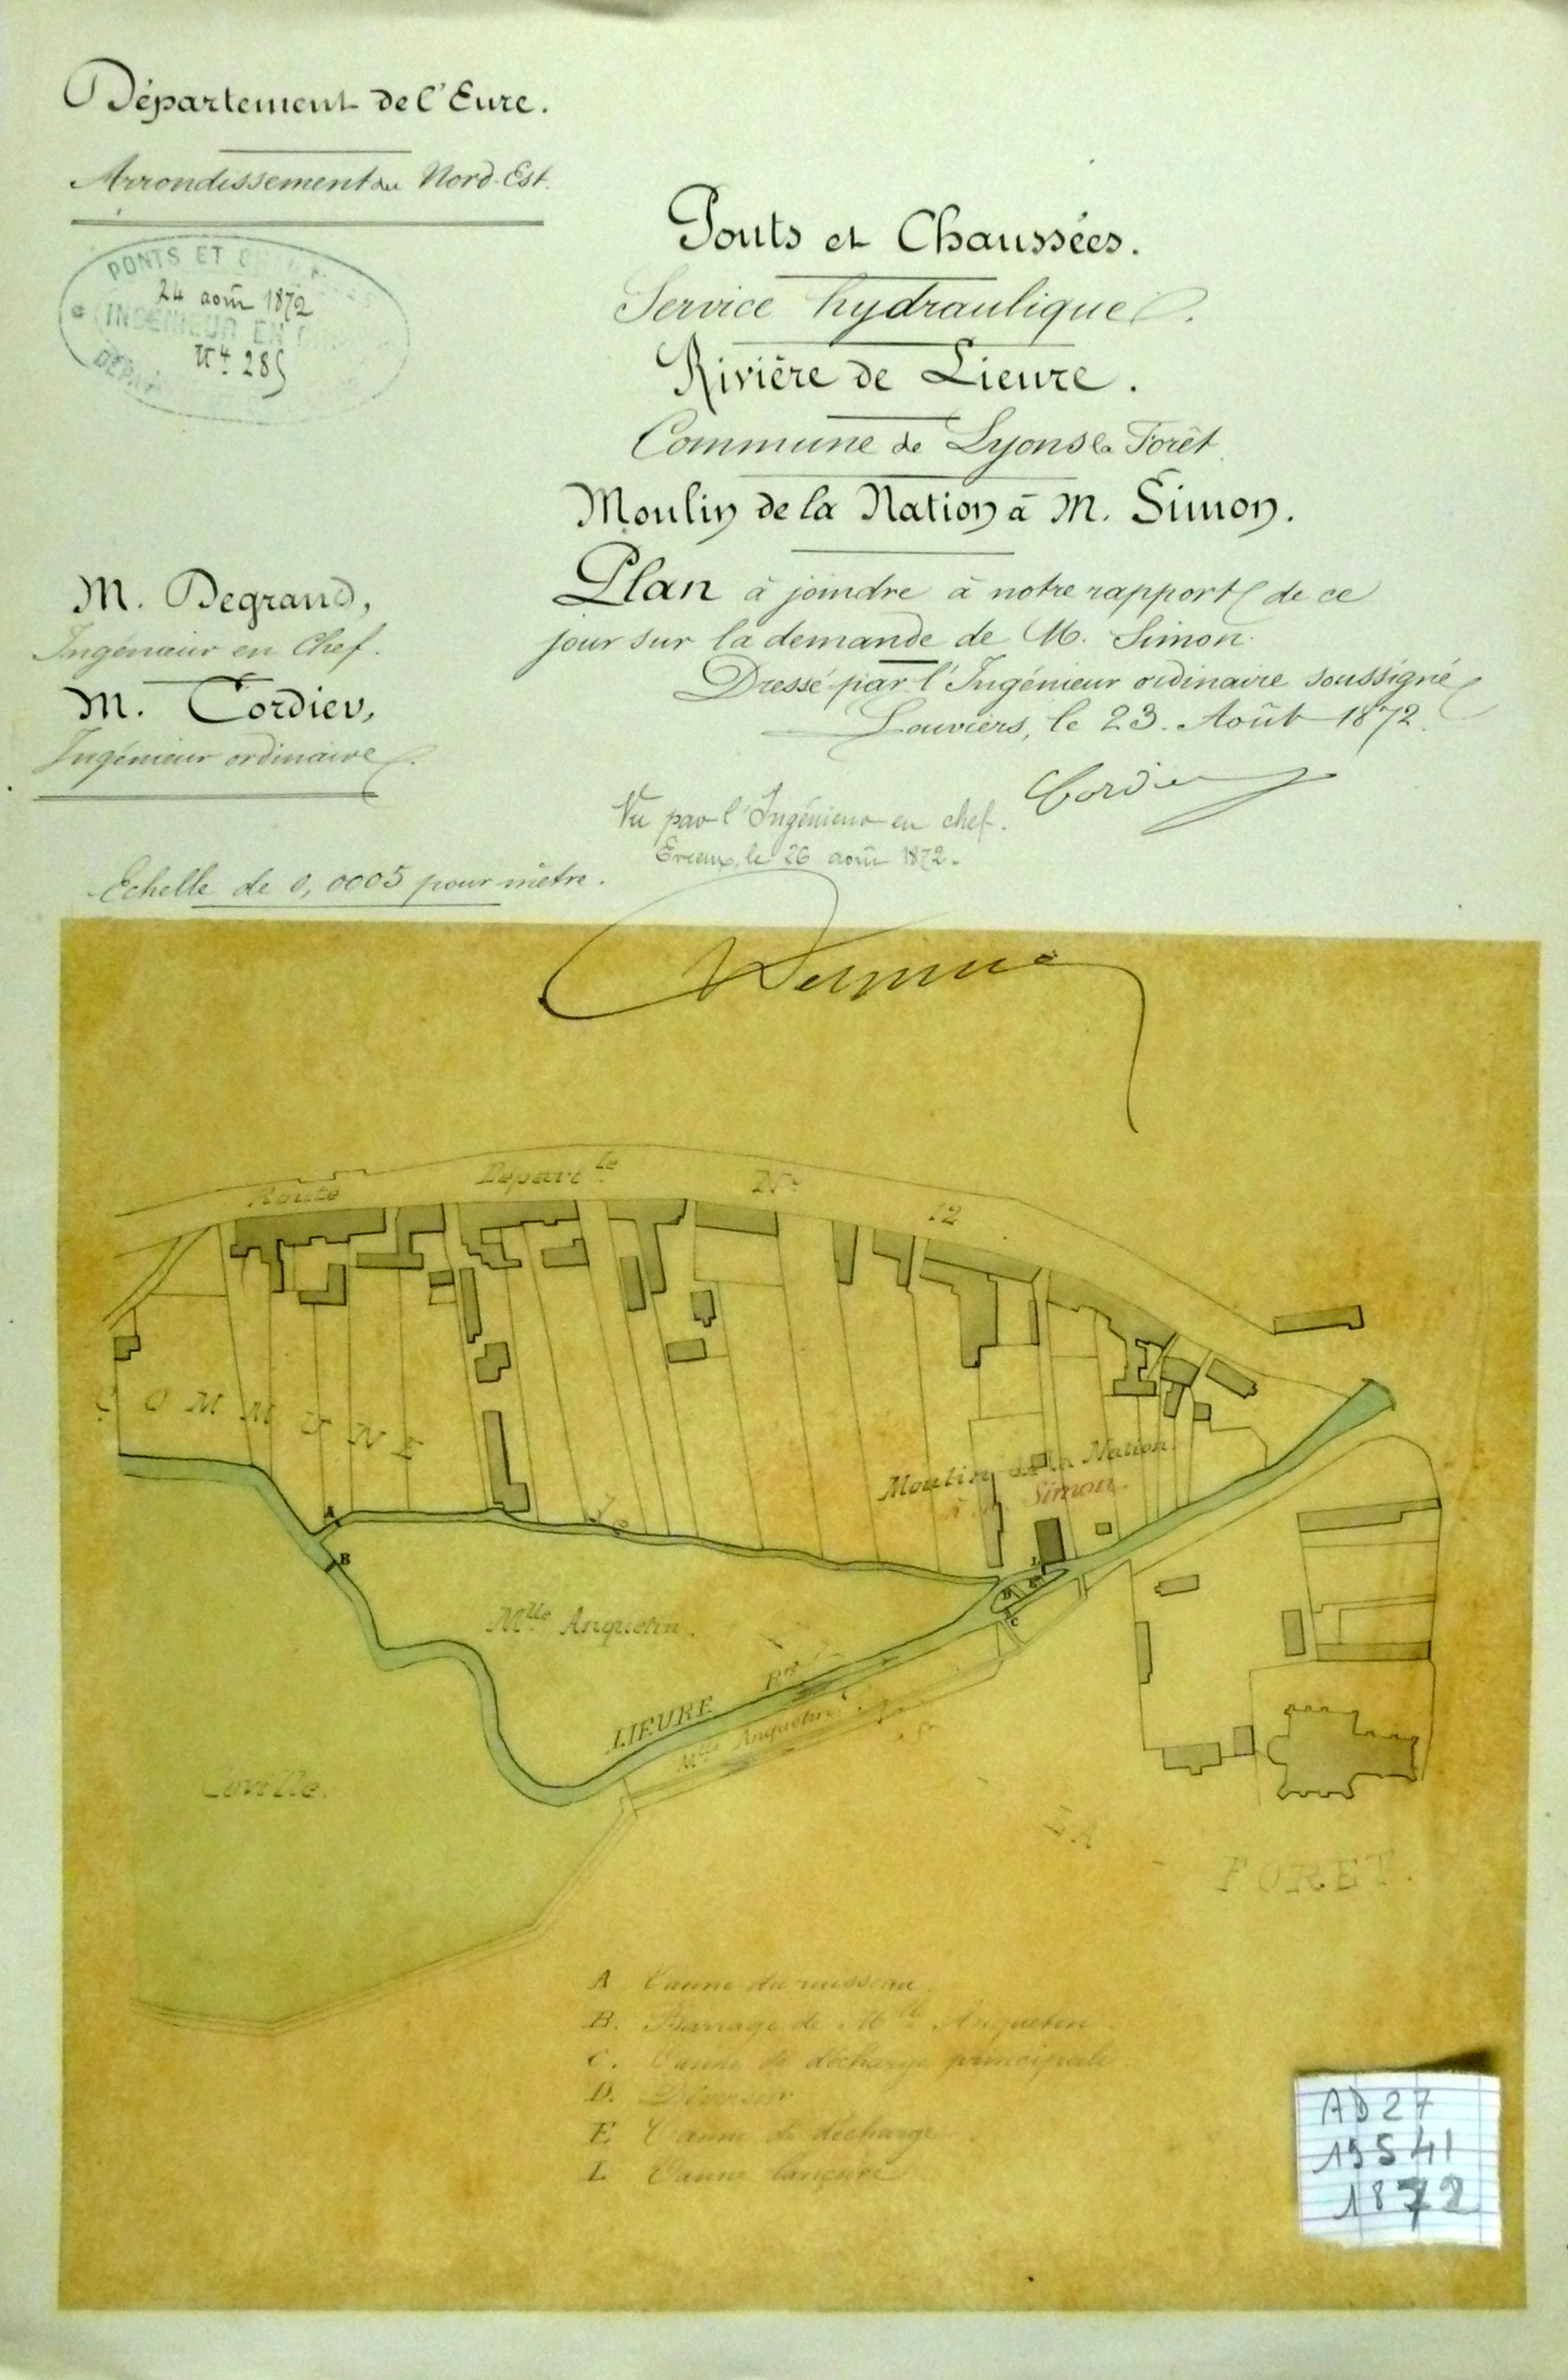 Département de l'Eure.
Arrondissement du Nord-Est.
PONTS ET
24 août 1872
INGÉNIEUR EN
N.º 285
Ponts et Chaussées.
Service hydraulique.
Rivière de Lieure.
Commune de Lyons la Forêt
Moulin de la Nation à M. Simon.
M. Degrand,
Ingénieur en Chef.
M. Cordier,
Ingénieur ordinaire.
Plan à joindre à notre rapport de ce
jour sur la demande de M. Simon.
Dressé par l'Ingénieur ordinaire soussigné
Louviers, le 23 Août 1872.
Cordier
Vu par l'Ingénieur en chef.
Evreux, le 26 août 1872.
Echelle de 0,0005 pour mètre.
Route Départ.le N.º 12
COMMUNE
Moulin de la Nation
à M. Simon.
A
B
L
E
D
C
Mlle Anquetin.
LIEURE Rre
Mlle Anquetin.
Caville.
LA
FORET.
A Vanne du ruisseau.
B. Barrage de Mlle Anquetin
C. Vanne de décharge principale
D. Déversoir
E Vanne de décharge
L Vanne lançoire
AD27
19541
1872